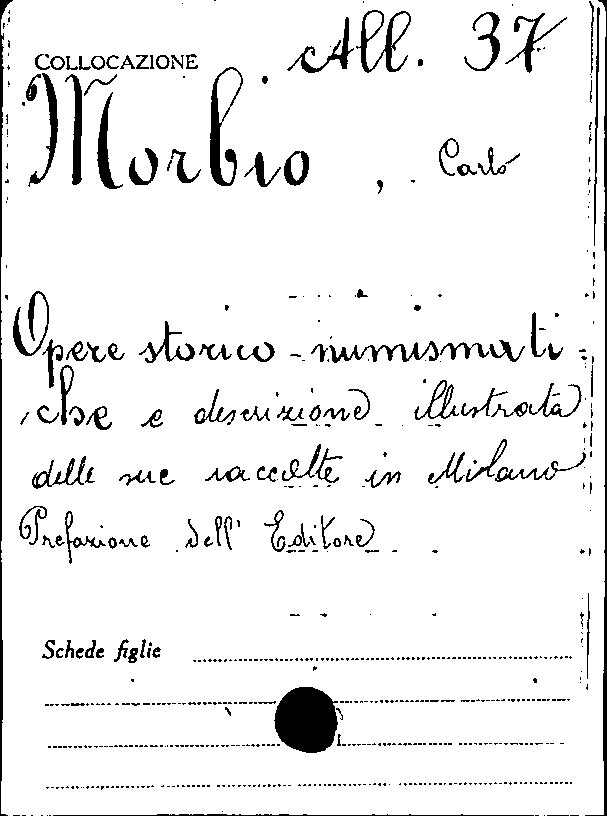 COLLOCAZIONE All. 37
Morbio, Carlo
Opere storico-numismati-
che e descrizione illustrata
delle sue raccolte in Milano
Prefazione dell' Editore
Schede figlie